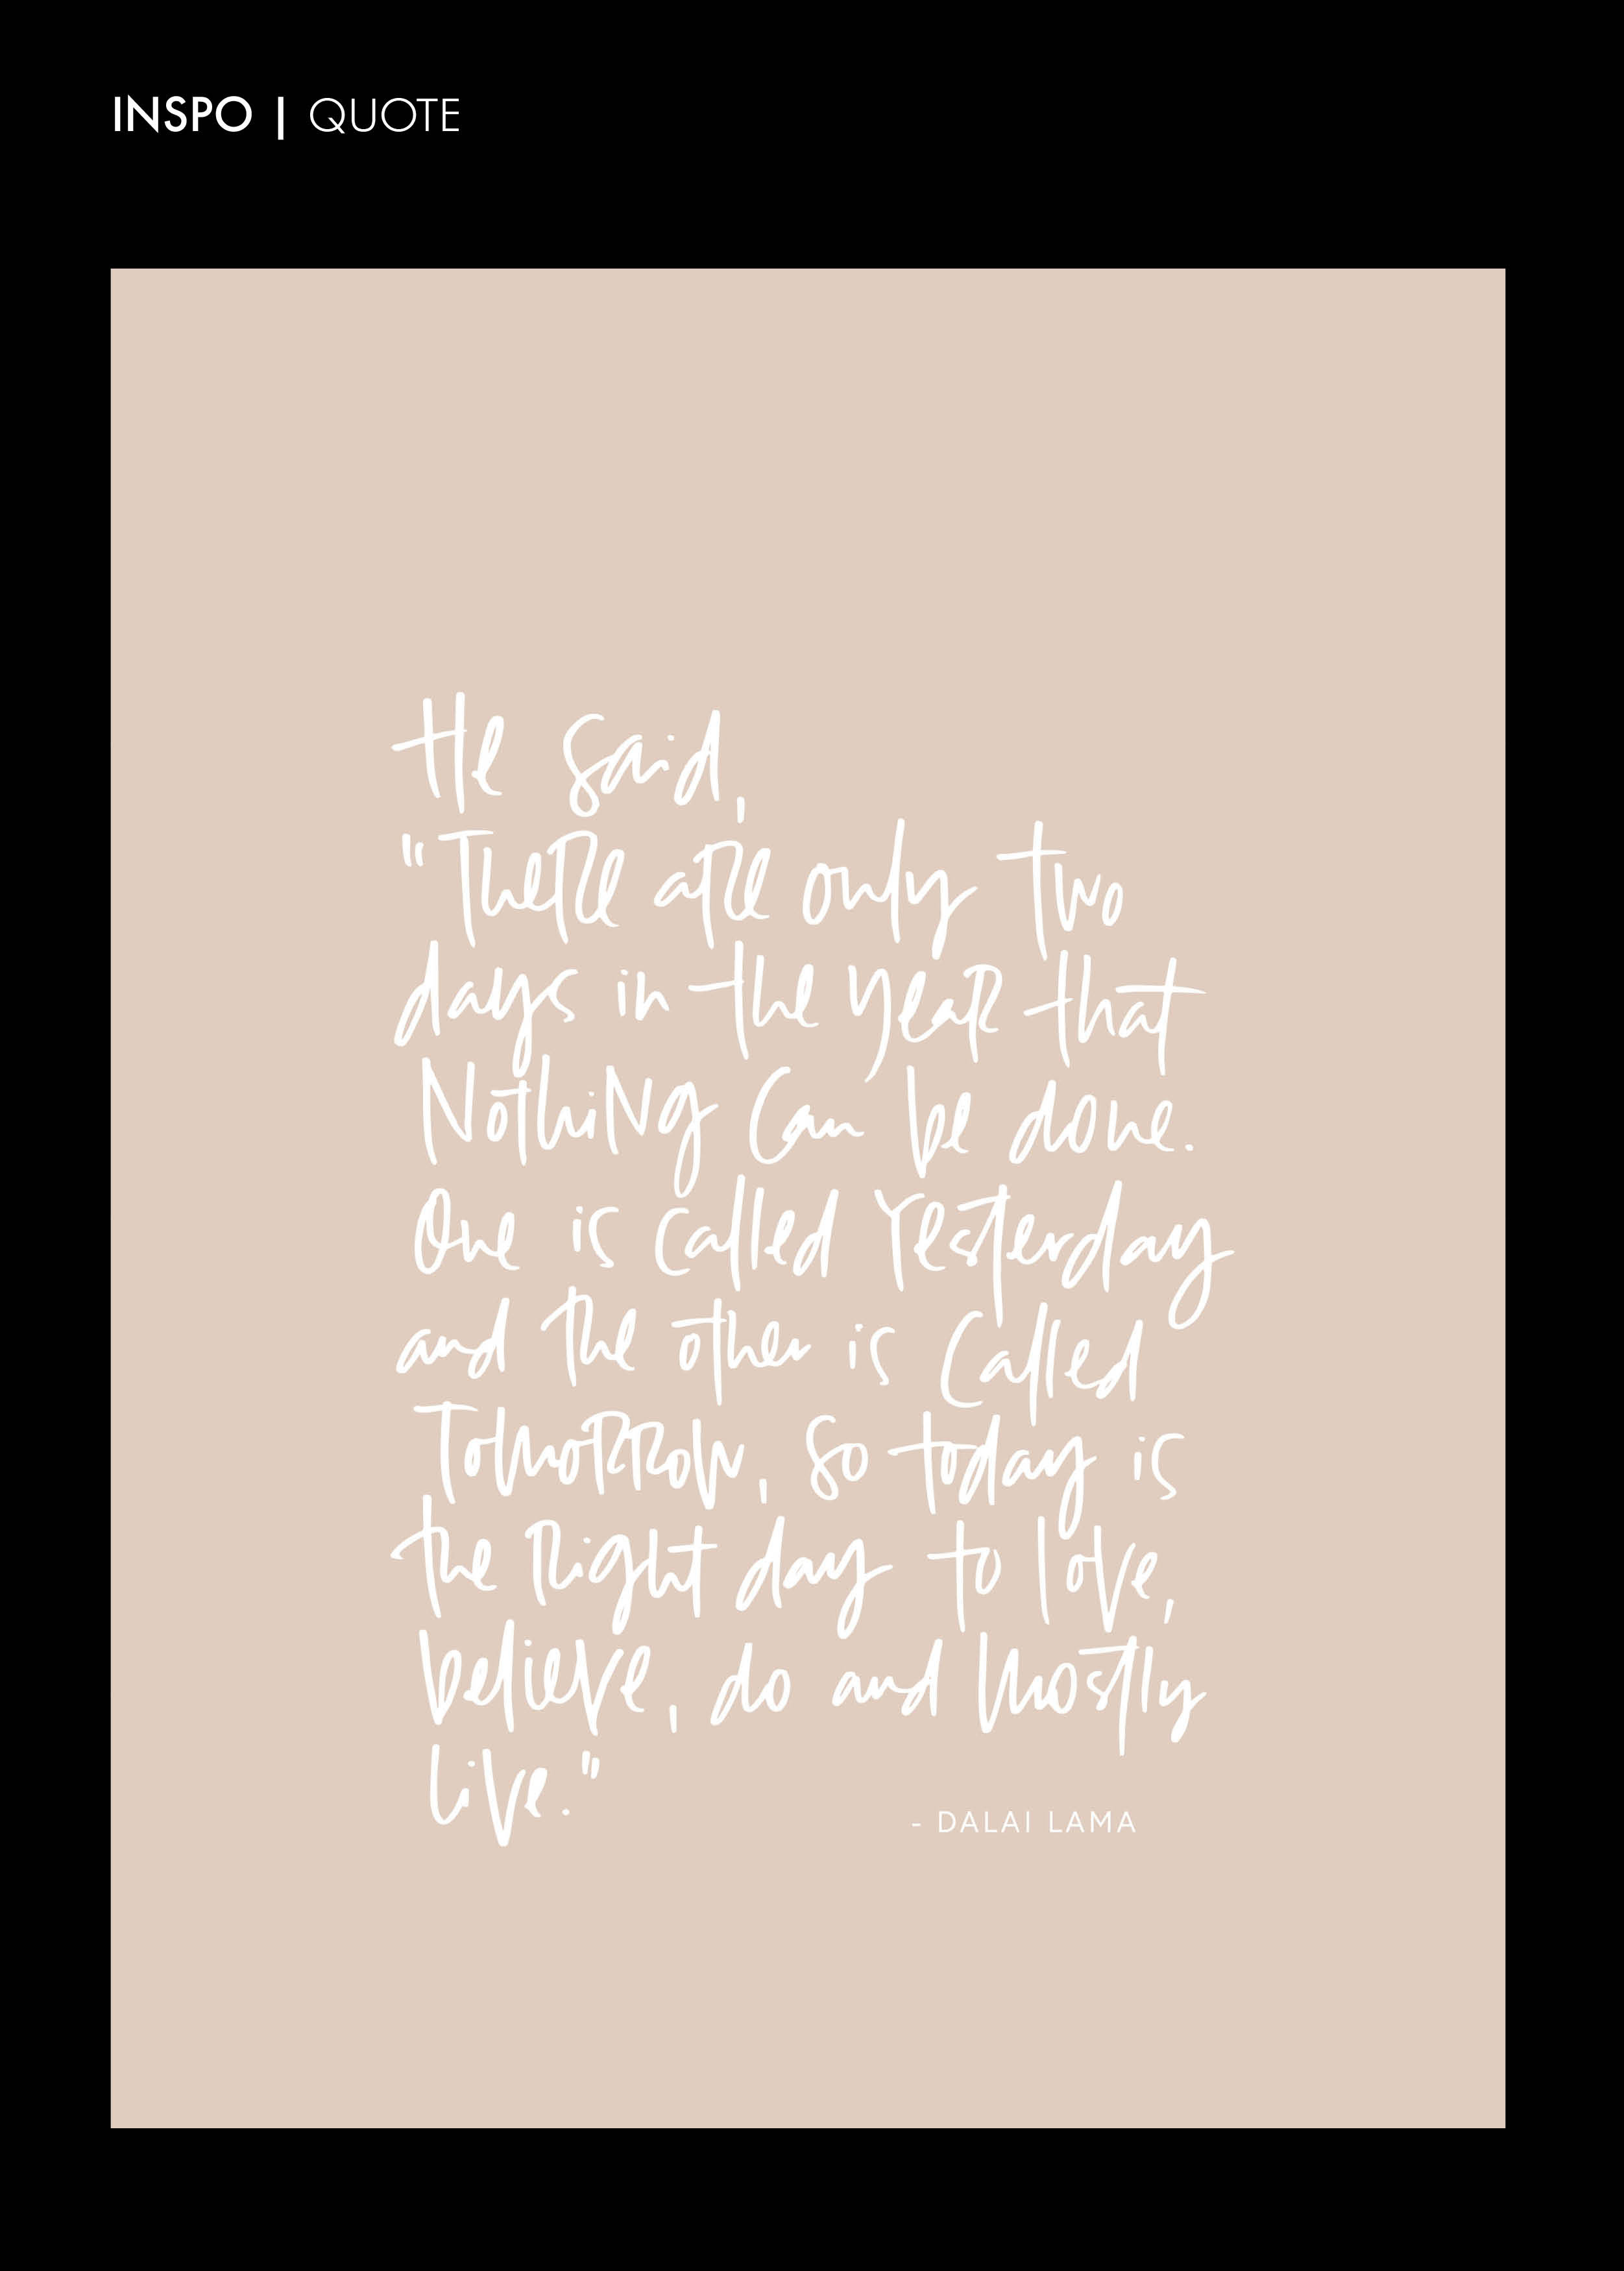 INSPO | QUOTE
He said,
"There are only two
days in the year that
Nothing can be done.
One is called Yesterday
and the other is called
Tomorrow, so today is
the right day to love,
believe, do and mostly
live."
- DALAI LAMA